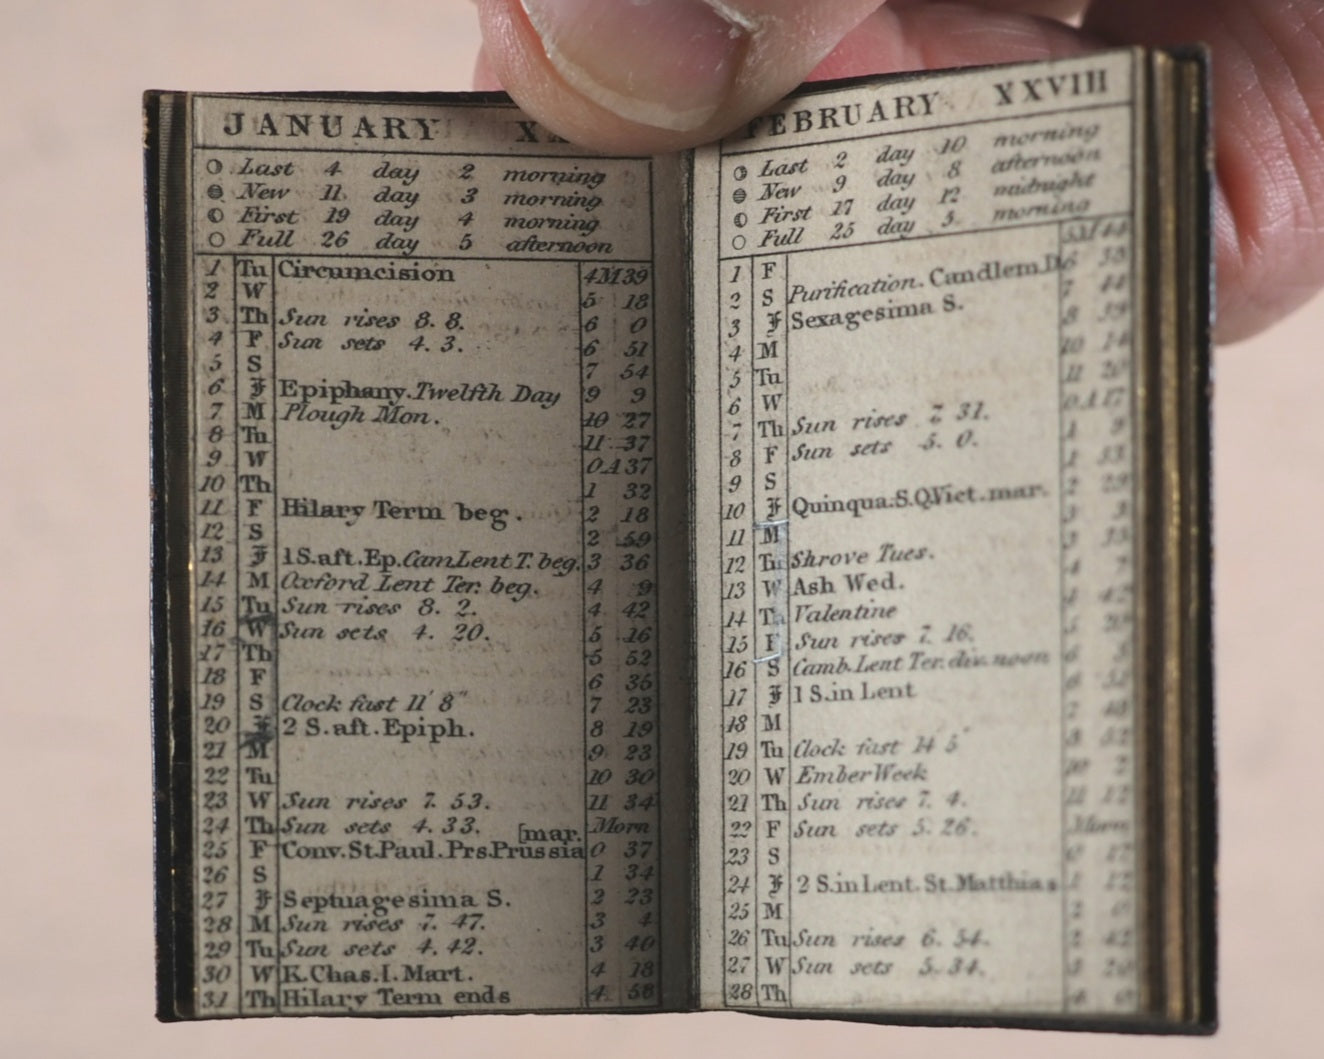 JANUARY
Last 4 day 2 morning
New 11 day 3 morning
First 19 day 4 morning
Full 26 day 5 afternoon
1 Tu Circumcision 4M39
2 W 5 18
3 Th Sun rises 8. 8. 6 0
4 F Sun sets 4. 3. 6 51
5 S 7 54
6 Epiphany. Twelfth Day 9 9
7 M Plough Mon. 10 27
8 Tu 11 37
9 W 0A37
10 Th 1 32
11 F Hilary Term beg. 2 18
12 S 2 59
13 1S.aft.Ep.CamLent T. beg. 3 36
14 M Oxford Lent Ter. beg. 4 9
15 Tu Sun rises 8. 2. 4 42
16 W Sun sets 4. 20. 5 16
17 Th 5 52
18 F 6 35
19 S Clock fast 11' 8" 7 23
20 2 S. aft. Epiph. 8 19
21 M 9 23
22 Tu 10 30
23 W Sun rises 7. 53. 11 34
24 Th Sun sets 4. 33. [mar. Morn
25 F Conv.St.Paul.Prs.Prussia 0 37
26 S 1 34
27 Septuagesima S. 2 23
28 M Sun rises 7. 47. 3 4
29 Tu Sun sets 4. 42. 3 40
30 W K.Chas.I.Mart. 4 18
31 Th Hilary Term ends 4 58
FEBRUARY XXVIII
Last 2 day 10 morning
New 9 day 8 afternoon
First 17 day 12 midnight
Full 25 day 5. morning
1 F
2 S Purification. Candlem.D
3 Sexagesima S.
4 M
5 Tu
6 W
7 Th Sun rises 7 31.
8 F Sun sets 5. 0.
9 S
10 Quinqua.S.Q.Vict.mar.
11 M
12 Tu Shrove Tues.
13 W Ash Wed.
14 Valentine
15 F Sun rises 7. 16.
16 S Camb.Lent Ter.div.noon
17 1 S.in Lent
18 M
19 Tu Clock fast 14 5"
20 W Ember Week
21 Th Sun rises 7. 4.
22 F Sun sets 5. 26. Morn
23 S
24 2 S.in Lent. St.Matthias
25 M
26 Tu Sun rises 6. 54.
27 W Sun sets 5. 34.
28 Th